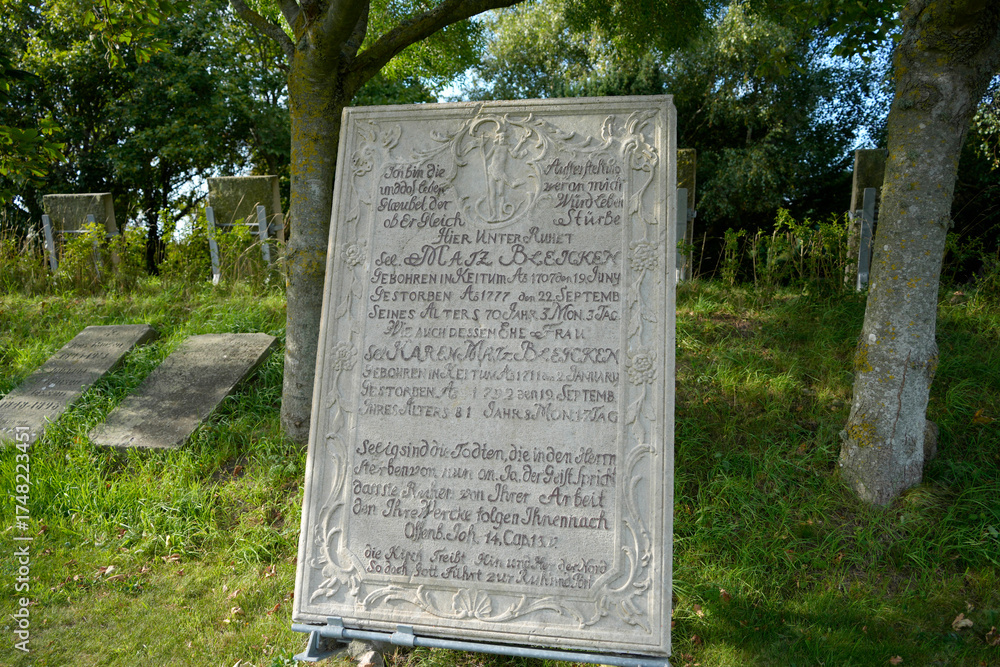 Ich bin die Auferstehung
und das leben wer an mich
Glœubet, der Würd leben
ob Er Gleich Stürbe
HIER UNTER RUHET
Sel. MATZ BLEICKEN
GEBOHREN IN KEITUM Ao 1707 den 19 JUNY
GESTORBEN Ao 1777 den 22. SEPTEMB
SEINES ALTERS 70 JAHR 3 MON. 3 TAG
WIE AUCH DESSEN EHE FRAU
Sel. KAREN MATZ BLEICKEN
GEBOHREN IN KEITUM Ao 1711 den 2 JANUARY
GESTORBEN Ao 1792 den 19. SEPTEMB
IHRES ALTERS 81 JAHR 8 MON. 17 TAG
Seelig sind die Todten, die in den Herrn
sterben von nun an. Ja, der Geist spricht
das sie Ruhen von Ihrer Arbeit
den Ihre Wercke folgen Ihnen nach
Offenb. Joh. 14. Cap 13 v.
die Kirch Treibt Hin und Her der Nord
So doch Gott Führt zur Ruh und Port
1898-1890